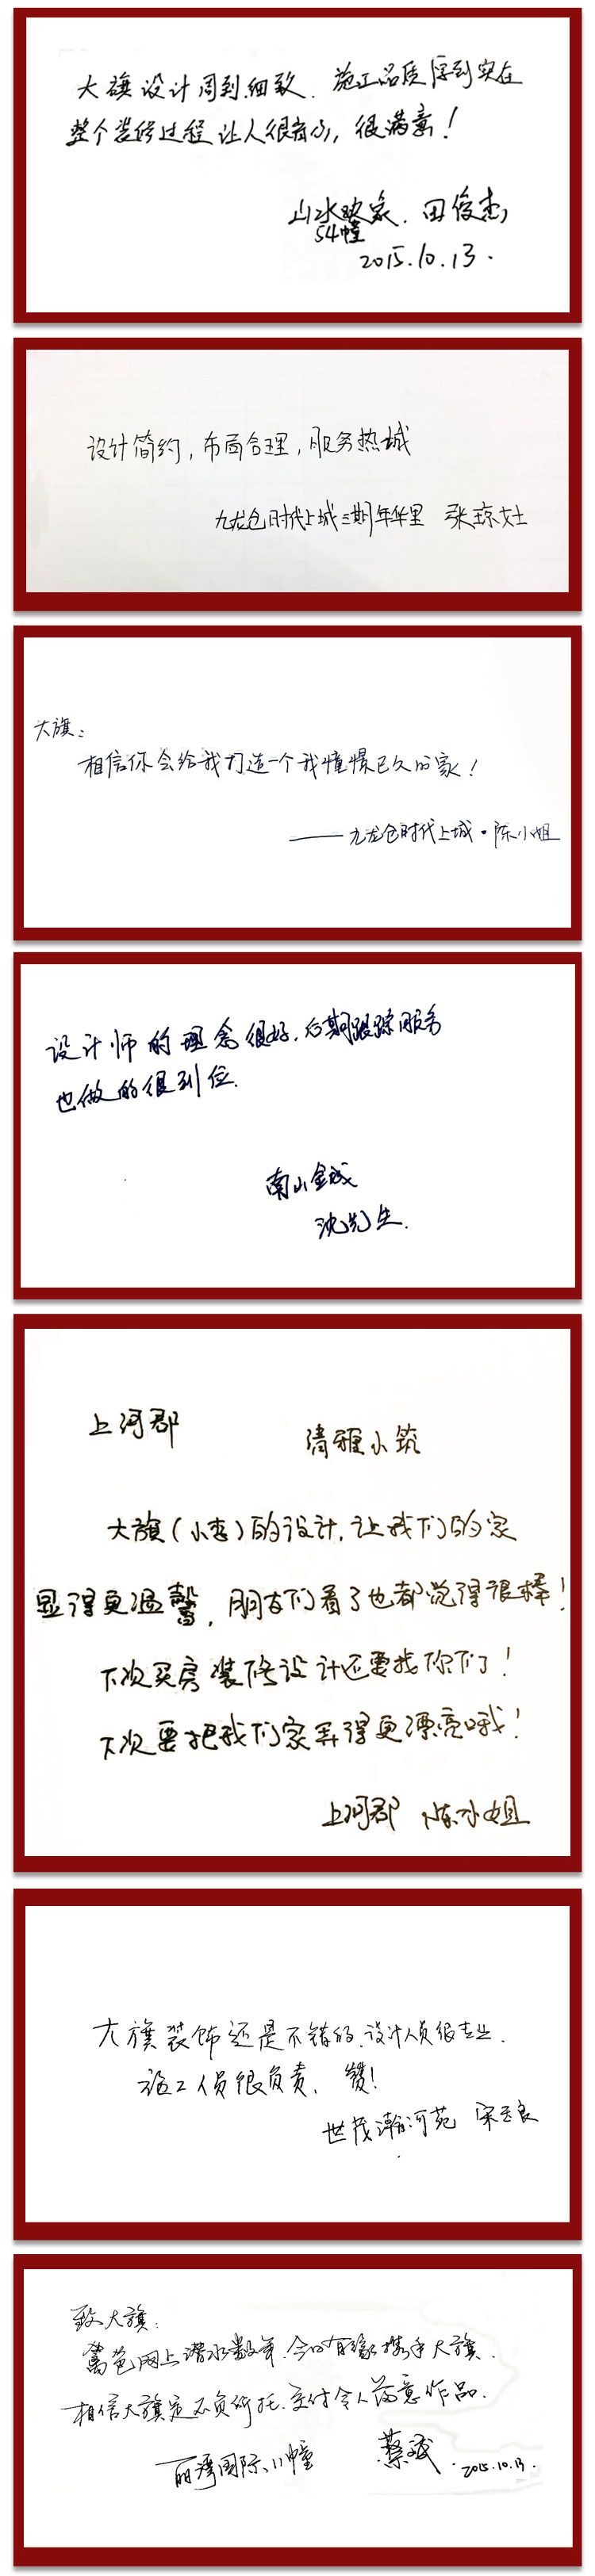 大旗设计周到细致.施工品质厚到实在
整个装修过程让人很省心,很满意!
山水映象.田俊杰
54幢
2015.10.13.
设计简约,布局合理,服务热城
九龙仓时代上城三期年华里 张琼灶
大旗:
相信你会给我打造一个我憧憬已久的家!
——九龙仓时代上城·陈小姐
设计师的理念很好.后期跟踪服务
也做的很到位.
南山金城
沈先生.
上河郡 清雅小筑
大旗(小李)的设计,让我们的家
显得更温馨,朋友们看了也都觉得很棒!
下次买房装修设计还要找你们了!
下次要把我们家弄得更漂亮哦!
上河郡 陈小姐
大旗装饰还是不错的.设计人员很专业.
施工人员很负责、赞!
世茂瀚河苑 宋良
致大旗:
篱笆网上潜水数年.今日有缘携手大旗.
相信大旗定不负所托.交付令人满意作品.
丽湾国际、11幢 蔡斌.2015.10.13.